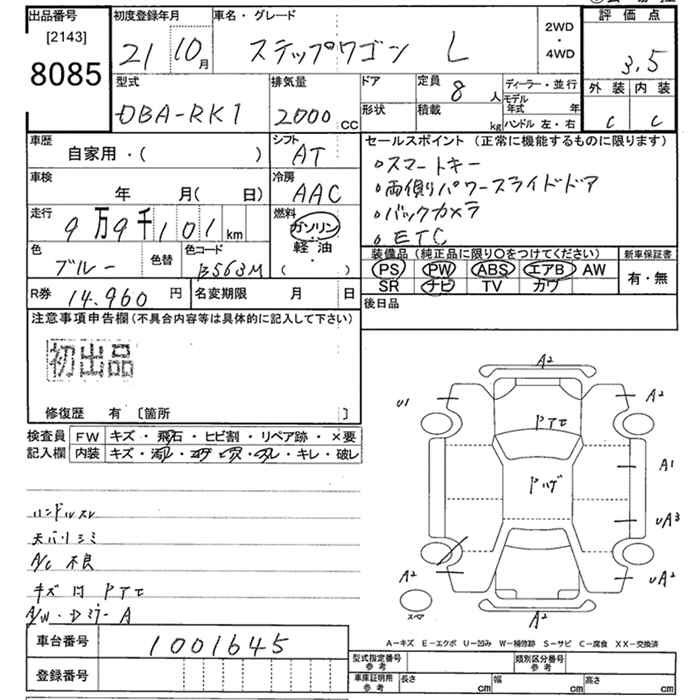 出品番号
[2143]
8085
初度登録年月
21 10月
車名・グレード
ステップワゴン L
2WD
・
4WD
評価点
3.5
外装 内装
C C
型式
DBA-RK1
排気量
2000 CC
ドア
形状
定員 8 人
積載 kg
ディーラー・並行
モデル年式 年
ハンドル 左・右
車歴
自家用・( )
シフト
AT
車検
年 月( 日)
冷房
AAC
走行
9万9千101km
燃料
ガソリン
軽油
( )
色
ブルー
色替
色コード
B563M
R券 14.960 円
名変期限 月 日
セールスポイント(正常に機能するものに限ります)
・スマートキー
・両側パワースライドドア
・バックカメラ
・ETC
装備品(純正品に限り○をつけてください)
PS PW ABS エアB AW
SR ナビ TV カワ
新車保証書
有・無
後日品
注意事項申告欄(不具合内容等は具体的に記入して下さい)
初出品
修復歴 有 [箇所 ]
検査員
記入欄
FW キズ・飛石・ヒビ割・リペア跡・×要
内装 キズ・汚れ・コゲ・ビス・スレ・キレ・破レ
ハンドルスレ
天バリシミ
A/C 不良
キズ 凹 PTE
A/W・
車台番号 1001645
登録番号
A2
U1
A2
PTE
A1
UA3
A2
UA2
A2
スペア
A-キズ E-エクボ U-凹み W-補修跡 S-サビ C-腐食 XX-交換済
型式指定番号
参考
類別区分番号
参考
車庫証明用
参考
長さ cm
幅 cm
高さ cm